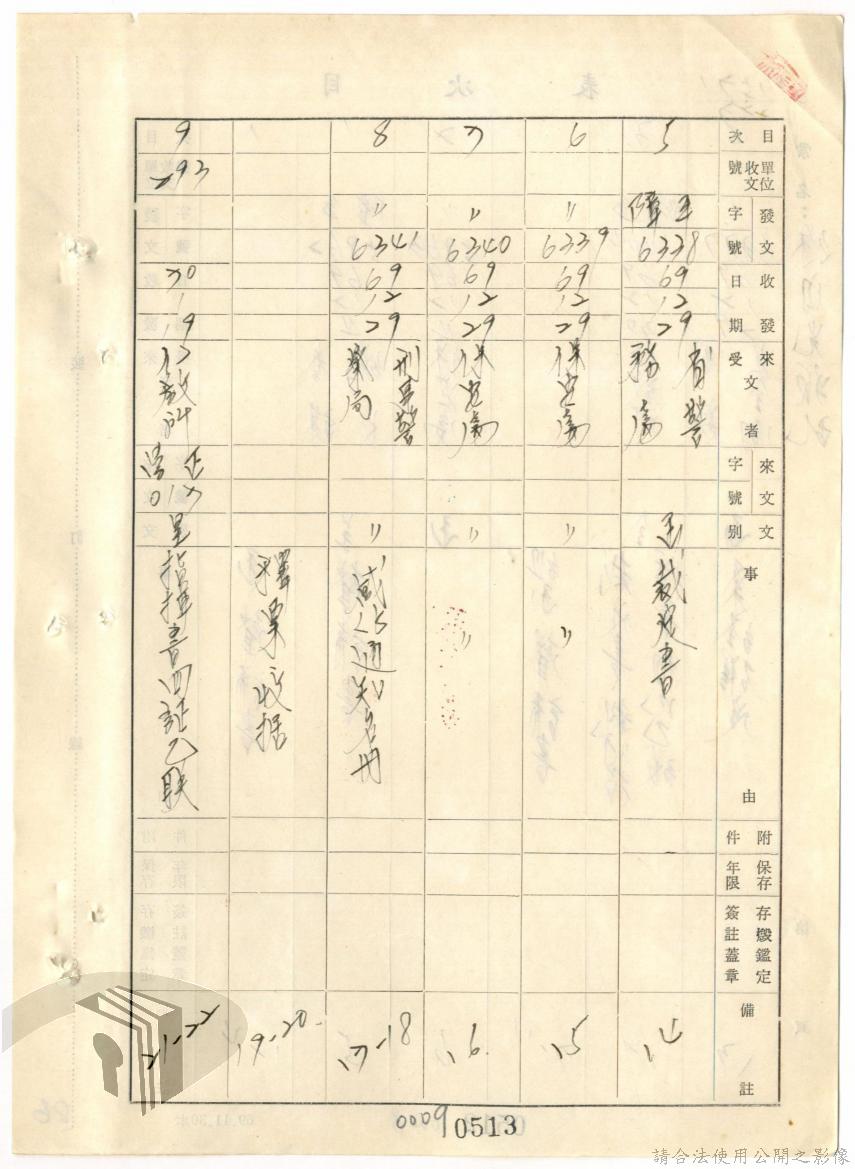 目次
單位收文號
發文字號
收發日期
來文受文者
來文字號
文別
事由
附件
保存年限
存檔鑑定簽註蓋章
備註
5
6338
69
12
29
省警務處
裁定書
14
6
〃
6339
69
12
29
保安處
〃
〃
15
7
〃
6340
69
12
29
保安處
〃
〃
16
8
〃
6341
69
12
29
刑事警察局
〃
減化通知名冊
17-18
釋票收据
19-20
9
293
70
1
19
仁教所
呈
指揮書四証乙联
21-22
0009
0513
69.11.30本
請合法使用公開之影像